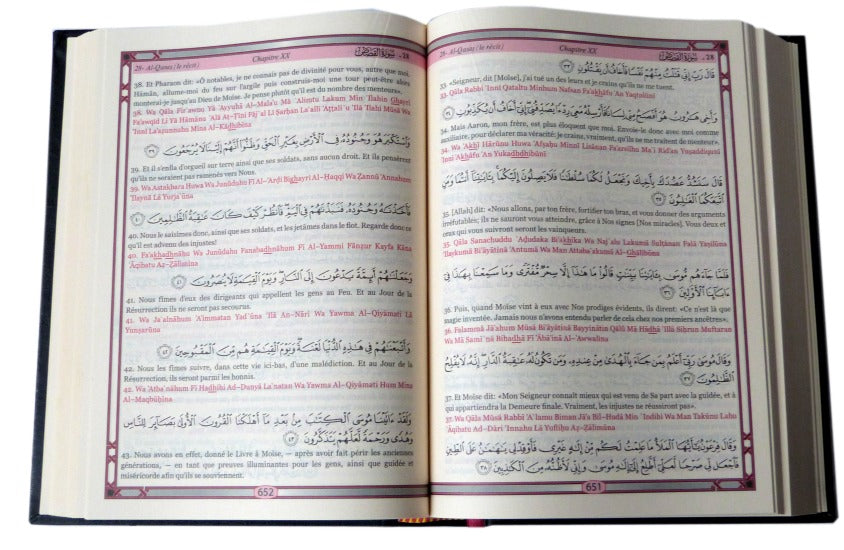 28- Al-Qasas (le récit) Chapitre XX سورة القصص - 28
قَالَ رَبِّ إِنِّي قَتَلْتُ مِنْهُمْ نَفْسًا فَأَخَافُ أَن يَقْتُلُونِ ٣٣
33. «Seigneur, dit [Moïse], j'ai tué un des leurs et je crains qu'ils ne me tuent.
33. Qāla Rabbi 'Innī Qataltu Minhum Nafsan Fa'akhāfu 'An Yaqtolūni
وَأَخِي هَارُونُ هُوَ أَفْصَحُ مِنِّي لِسَانًا فَأَرْسِلْهُ مَعِيَ رِدْءًا يُصَدِّقُنِي إِنِّي أَخَافُ أَن يُكَذِّبُونِ ٣٤
34. Mais Aaron, mon frère, est plus éloquent que moi. Envoie-le donc avec moi comme
auxiliaire, pour déclarer ma véracité: je crains, vraiment, qu'ils ne me traitent de menteur».
34. Wa 'Akhī Hārūnu Huwa 'Afşaĥu Minnī Lisāaan Fa'arsilhu Ma`ī Rid'an Yuşaddiqunī
'Innī 'Akhāfu 'An Yukadhdhibūni
قَالَ سَنَشُدُّ عَضُدَكَ بِأَخِيكَ وَنَجْعَلُ لَكُمَا سُلْطَانًا فَلَا يَصِلُونَ إِلَيْكُمَا بِآيَاتِنَا أَنتُمَا وَمَنِ
اتَّبَعَكُمَا الْغَالِبُونَ ٣٥
35. [Allah] dit: «Nous allons, par ton frère, fortifier ton bras, et vous donner des arguments
irréfutables; ils ne sauront vous atteindre, grâce à Nos signes [Nos miracles]. Vous deux et
ceux qui vous suivront seront les vainqueurs.
35. Qāla Sanachuddu `Ađudaka Bi'akhīka Wa Naj`alu Lakumā Sulţānan Falā Yaşilūna
'Ilaykumā Bi'āyātinā 'Antumā Wa Man Attaba`akumā Al-Ghālibūna
فَلَمَّا جَاءَهُم مُّوسَىٰ بِآيَاتِنَا بَيِّنَاتٍ قَالُوا مَا هَٰذَا إِلَّا سِحْرٌ مُّفْتَرًى وَمَا سَمِعْنَا بِهَٰذَا فِي
آبَائِنَا الْأَوَّلِينَ ٣٦
36. Puis, quand Moïse vint à eux avec Nos prodiges évidents, ils dirent: «Ce n'est là que
magie inventée. Jamais nous n'avons entendu parler de cela chez nos premiers ancêtres».
36. Falammā Jā'ahum Mūsá Bi'āyātinā Bayyinātin Qālū Mā Hādhā 'Illā Siĥrun Muftaran
Wa Mā Sami`nā Bihadhā Fī 'Ābā'inā Al-'Awwalīna
وَقَالَ مُوسَىٰ رَبِّي أَعْلَمُ بِمَن جَاءَ بِالْهُدَىٰ مِنْ عِندِهِ وَمَن تَكُونُ لَهُ عَاقِبَةُ الدَّارِ إِنَّهُ لَا يُفْلِحُ
الظَّالِمُونَ ٣٧
37. Et Moïse dit: «Mon Seigneur connaît mieux qui est venu de Sa part avec la guidée, et à
qui appartiendra la Demeure finale. Vraiment, les injustes ne réussiront pas».
37. Wa Qāla Mūsá Rabbī 'A`lamu Biman Jā'a Bil-Hudá Min `Indihi Wa Man Takūnu Lahu
`Āqibatu Ad-Dāri 'Innahu Lā Yufliĥu Až-Žālimūna
وَقَالَ فِرْعَوْنُ يَا أَيُّهَا الْمَلَأُ مَا عَلِمْتُ لَكُم مِّنْ إِلَٰهٍ غَيْرِي فَأَوْقِدْ لِي يَا هَامَانُ عَلَى الطِّينِ
فَاجْعَل لِّي صَرْحًا لَّعَلِّي أَطَّلِعُ إِلَىٰ إِلَٰهِ مُوسَىٰ وَإِنِّي لَأَظُنُّهُ مِنَ الْكَاذِبِينَ ٣٨
651
28- Al-Qasas (le récit) Chapitre XX سورة القصص - 28
38. Et Pharaon dit: «Ô notables, je ne connais pas de divinité pour vous, autre que moi.
Hāmān, allume-moi du feu sur l'argile puis construis-moi une tour peut-être alors
monterai-je jusqu'au Dieu de Moïse. Je pense plutôt qu'il est du nombre des menteurs».
38. Wa Qāla Fir`awnu Yā 'Ayyuhā Al-Mala'u Mā `Alimtu Lakum Min 'Ilahin Ghayrī
Fa'awqid Lī Yā Hāmānu `Alá Aţ-Ţīni Fāj`al Lī Şarĥan La`allī 'Aţţali`u 'Ilá 'Ilahi Mūsá Wa
'Innī La'ažunnuhu Mina Al-Kādhibīna
وَاسْتَكْبَرَ هُوَ وَجُنُودُهُ فِي الْأَرْضِ بِغَيْرِ الْحَقِّ وَظَنُّوا أَنَّهُمْ إِلَيْنَا لَا يُرْجَعُونَ ٣٩
39. Et il s'enfla d'orgueil sur terre ainsi que ses soldats, sans aucun droit. Et ils pensèrent
qu'ils ne seraient pas ramenés vers Nous.
39. Wa Astakbara Huwa Wa Junūduhu Fī Al-'Arđi Bighayri Al-Ĥaqqi Wa Žannū 'Annahum
'Ilaynā Lā Yurja`ūna
فَأَخَذْنَاهُ وَجُنُودَهُ فَنَبَذْنَاهُمْ فِي الْيَمِّ فَانظُرْ كَيْفَ كَانَ عَاقِبَةُ الظَّالِمِينَ ٤٠
40. Nous le saisîmes donc, ainsi que ses soldats, et les jetâmes dans le flot. Regarde donc ce
qu'il est advenu des injustes!
40. Fa'akhadhnāhu Wa Junūdahu Fanabadhnāhum Fī Al-Yammi Fānžur Kayfa Kāna
`Āqibatu Až-Žālimīna
وَجَعَلْنَاهُمْ أَئِمَّةً يَدْعُونَ إِلَى النَّارِ وَيَوْمَ الْقِيَامَةِ لَا يُنصَرُونَ ٤١
41. Nous fîmes d'eux des dirigeants qui appellent les gens au Feu. Et au Jour de la
Résurrection ils ne seront pas secourus.
41. Wa Ja`alnāhum 'A'immatan Yad`ūna 'Ilá An-Nāri Wa Yawma Al-Qiyāmati Lā
Yunşarūna
وَأَتْبَعْنَاهُمْ فِي هَٰذِهِ الدُّنْيَا لَعْنَةً وَيَوْمَ الْقِيَامَةِ هُم مِّنَ الْمَقْبُوحِينَ ٤٢
42. Nous les fîmes suivre, dans cette vie ici-bas, d'une malédiction. Et au Jour de la
Résurrection, ils seront parmi les honnis.
42. Wa 'Atba`nāhum Fī Hadhihi Ad-Dunyā La`natan Wa Yawma Al-Qiyāmati Hum Mina
Al-Maqbūĥīna
وَلَقَدْ آتَيْنَا مُوسَى الْكِتَابَ مِن بَعْدِ مَا أَهْلَكْنَا الْقُرُونَ الْأُولَىٰ بَصَائِرَ لِلنَّاسِ
وَهُدًى وَرَحْمَةً لَّعَلَّهُمْ يَتَذَكَّرُونَ ٤٣
43. Nous avons en effet, donné le Livre à Moïse, – après avoir fait périr les anciennes
générations, – en tant que preuves illuminantes pour les gens, ainsi que guidée et
miséricorde afin qu'ils se souviennent.
652